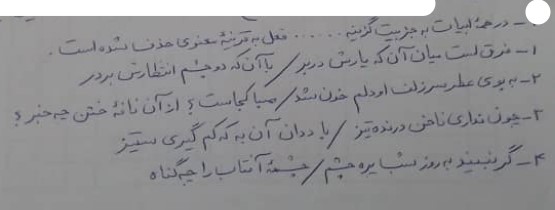 ۲- در همهٔ ابیات به جز بیت گزینه ...... فعل به قرینهٔ معنوی حذف شده است.
۱- فرق است میان آن که یارش در بر / با آن که دو چشم انتظارش بر در
۲- به بوی عطر سر زلف او دلم خون شد / صبا کجاست؟ از آن نافهٔ ختن چه خبر؟
۳- چون نداری ناخن درنده تیز / با ددان آن به که کم گیری ستیز
۴- گر نبیند به روز شب پره چشم / چشمهٔ آفتاب را چه گناه